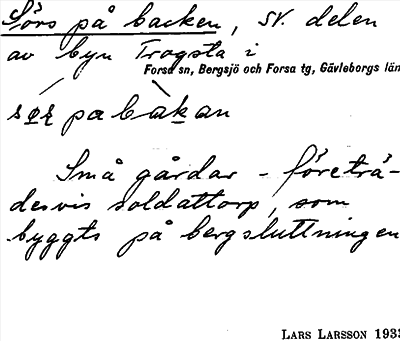 Sörs på backen, SV. delen
av byn Trogsta i
Forsa sn, Bergsjö och Forsa tg, Gävleborgs län
pa bakan
Små gårdar - företrä-
desvis soldattorp, som
byggts på bergsluttningen
LARS LARSSON 1933